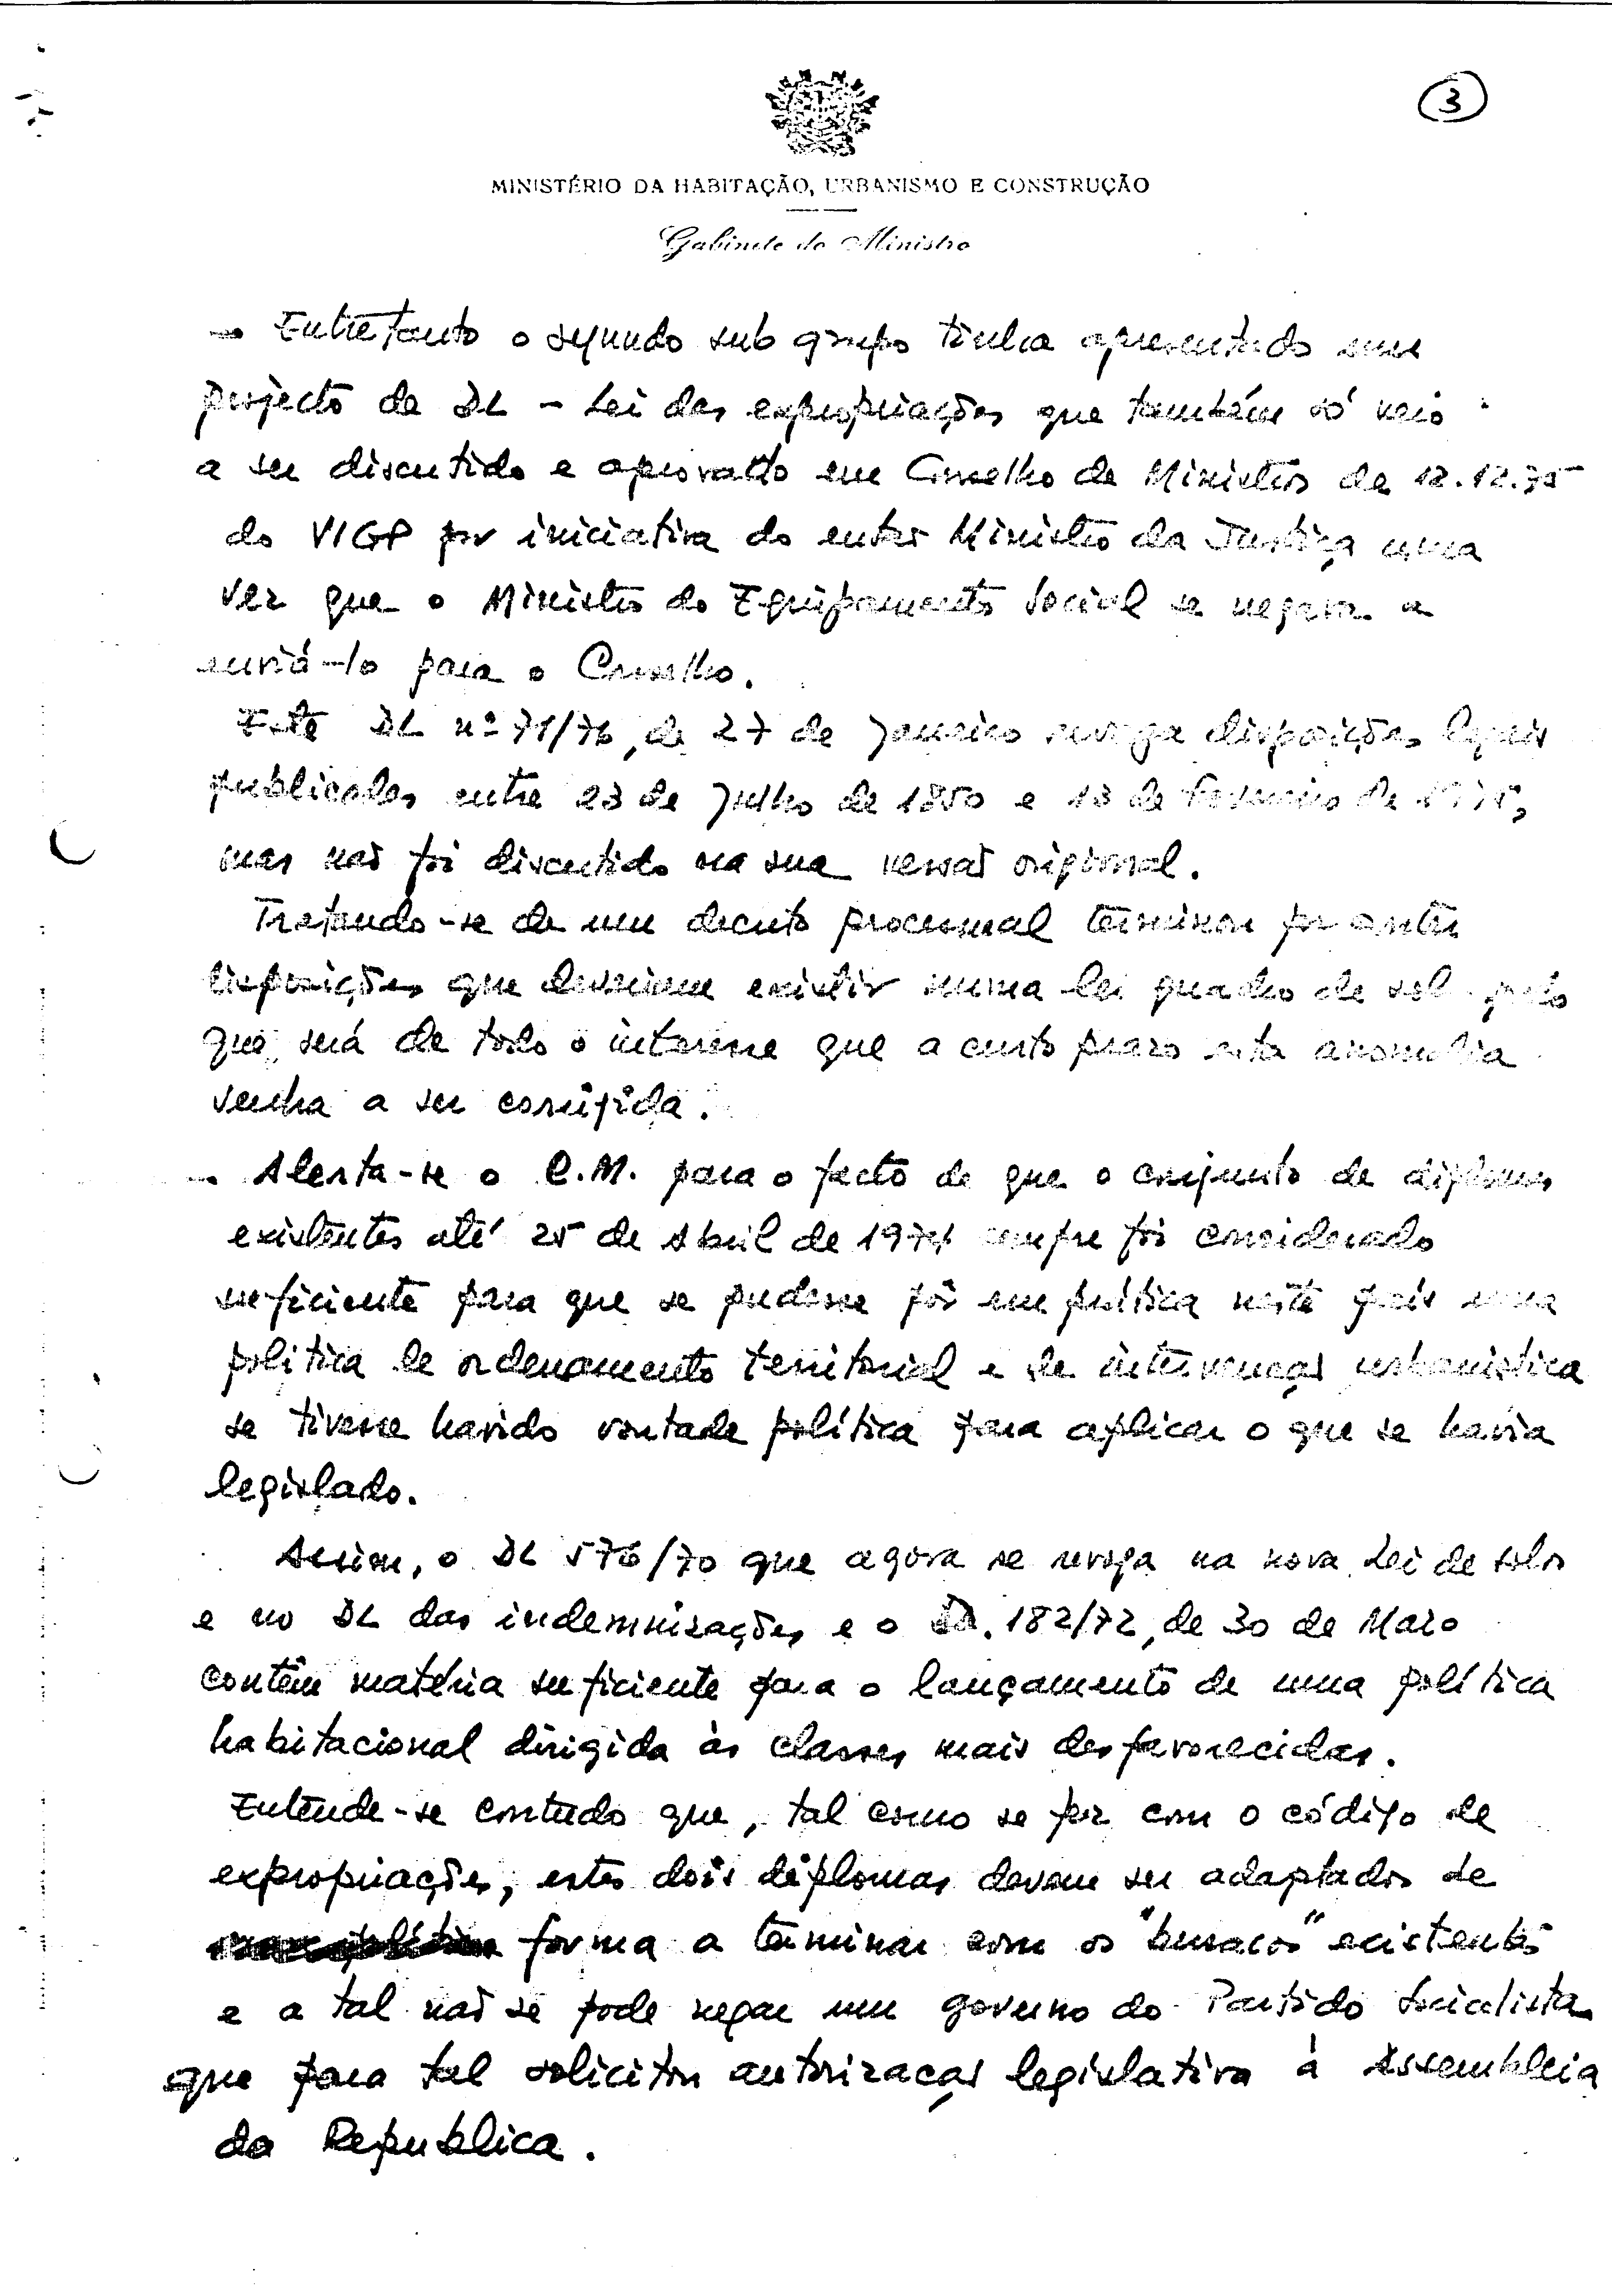 3
MINISTÉRIO DA HABITAÇÃO, URBANISMO E CONSTRUÇÃO
Gabinete do Ministro
→ Entretanto o segundo sub grupo tinha apresentado um
projecto de DL – Lei das expropriações que também só veio
a ser discutido e aprovado em Conselho de Ministros de 12.12.75
do VI GP por iniciativa do então Ministro da Justiça uma
vez que o Ministro do Equipamento Social se negava a
enviá-lo para o Conselho.
Este DL nº 71/76, de 27 de Janeiro revoga disposições legais
publicadas entre 23 de Julho de 1850 e 18 de Fevereiro de 1975,
mas não foi discutido na sua versão original.
Tratando-se de um decreto processual terminou por conter
disposições que deveriam existir numa lei quadro de solo pelo
que será de todo o interesse que a curto prazo esta anomalia
venha a ser corrigida.
- Alerta-se o C.M. para o facto de que o conjunto de diplomas
existentes até 25 de Abril de 1974 sempre foi considerado
suficiente para que se pudesse pôr em prática neste país uma
politica de ordenamento territorial e de intervenção urbanistica
se tivesse havido vontade política para aplicar o que se havia
legislado.
Assim, o DL 576/70 que agora se revoga na nova Lei de solos
e no DL das indemnizações e o 182/72, de 30 de Maio
contêm matéria suficiente para o lançamento de uma política
habitacional dirigida às classes mais desfavorecidas.
Entende-se contudo que, tal como se fez com o código de
expropriações, estes dois diplomas devem ser adaptados de
forma a terminar com os "buracos" existentes
e a tal não se pode negar um governo do Partido Socialista
que para tal solicitou autorização legislativa à Assembleia
da Republica.